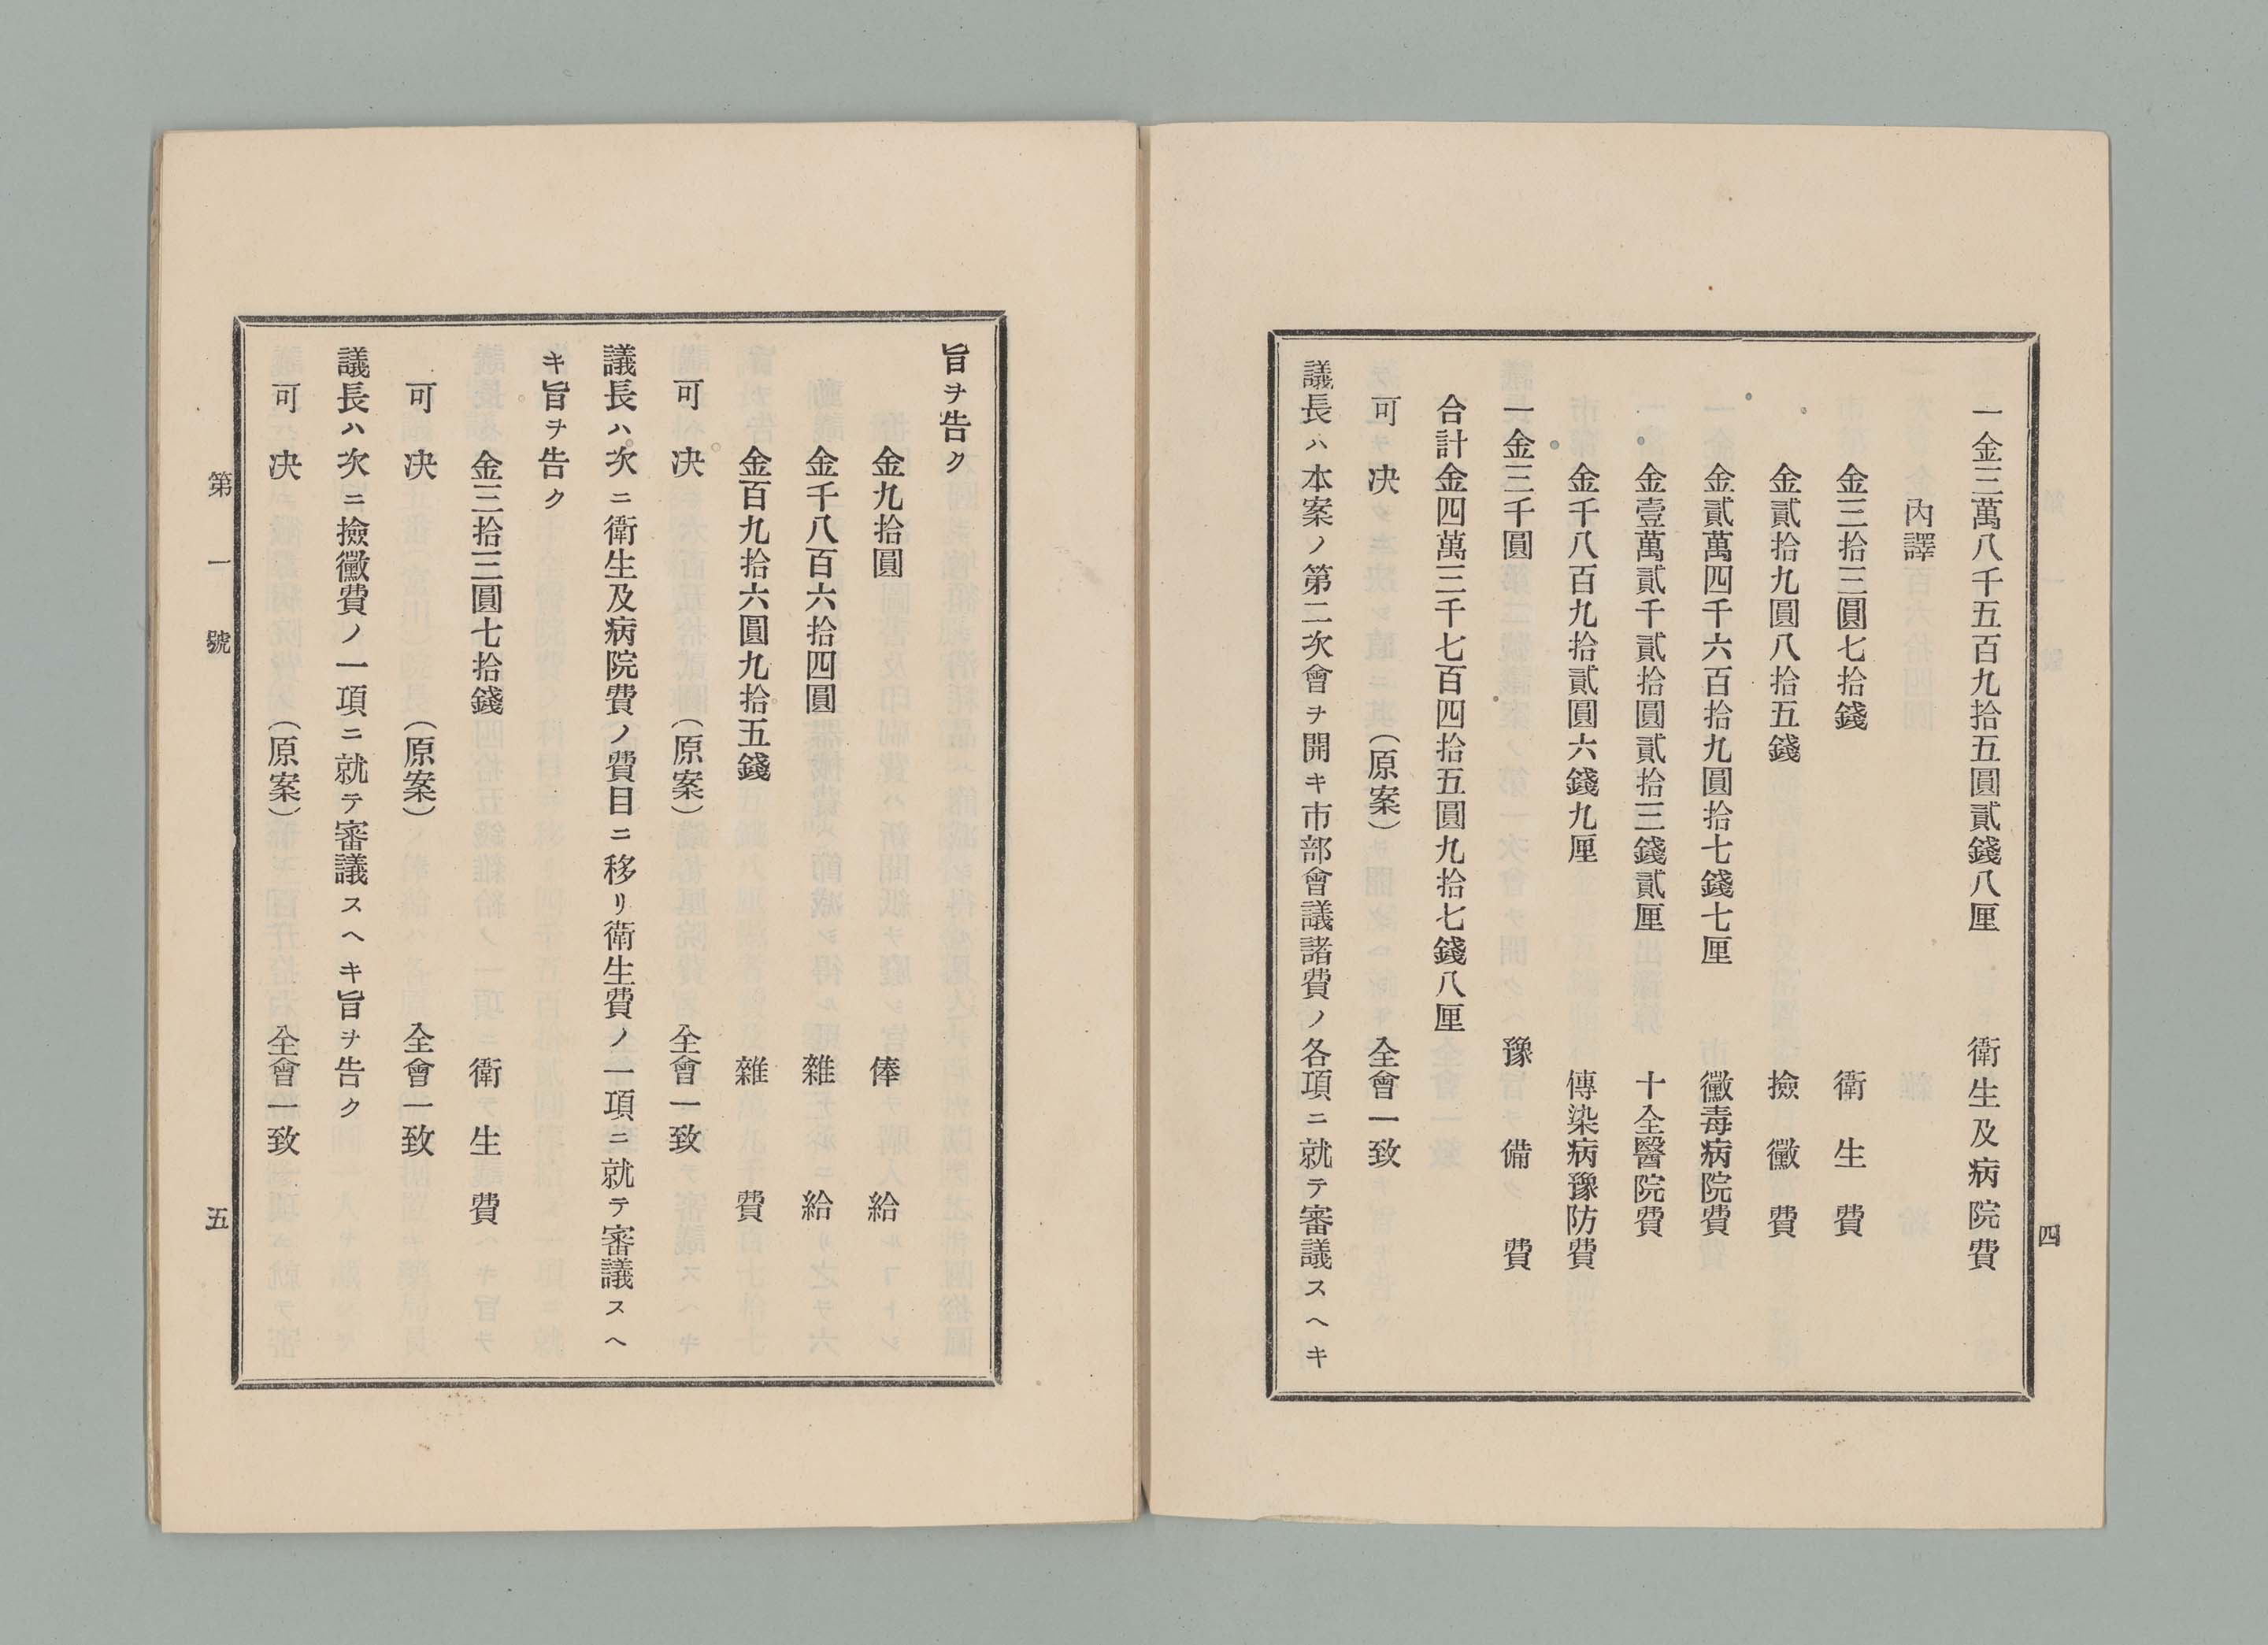 四
一金三萬八千五百九拾五圓貳錢八厘 衛生及病院費
內譯
金三拾三圓七拾錢 衛生費
金貳拾九圓八拾五錢 撿黴費
金貳萬四千六百拾九圓拾七錢七厘 黴毒病院費
金壹萬貳千貳拾圓貳拾三錢貳厘 十全醫院費
金千八百九拾貳圓六錢九厘 傳染病豫防費
一金三千圓 豫備費
合計金四萬三千七百四拾五圓九拾七錢八厘
可决 (原案) 全會一致
議長ハ本案ノ第二次會ヲ開キ市部會議諸費ノ各項ニ就テ審議スヘキ
旨ヲ告ク
金九拾圓 俸給
金千八百六拾四圓 雜給
金百九拾六圓九拾五錢 雜費
可决 (原案) 全會一致
議長ハ次ニ衛生及病院費ノ費目ニ移リ衛生費ノ一項ニ就テ審議スヘ
キ旨ヲ告ク
金三拾三圓七拾錢 衛生費
可决 (原案) 全會一致
議長ハ次ニ撿黴費ノ一項ニ就テ審議スヘキ旨ヲ告ク
可决 (原案) 全會一致
第一號 五